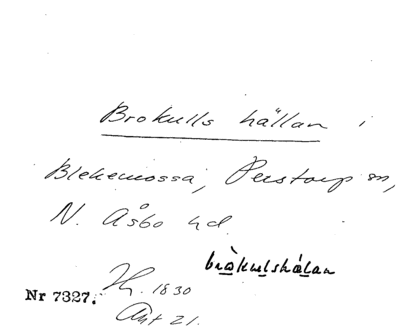 Brokulls hällan i
Blekemossa, Perstorp sn,
N. Åsbo hd.
bròkulshálan
Nr 7327. 1830
Ant 21.